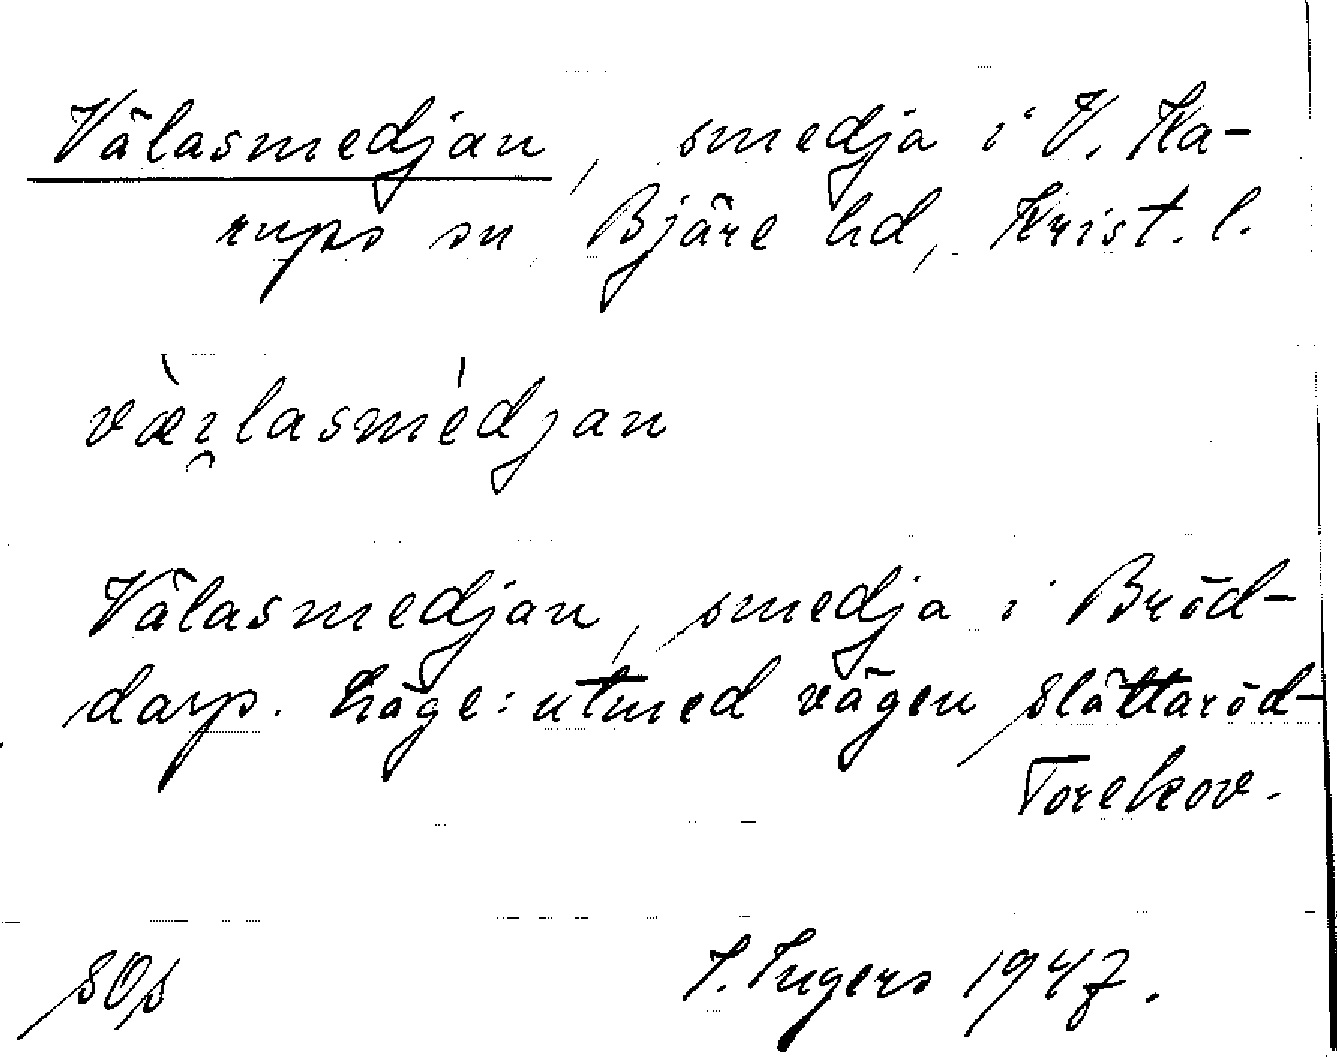 Välasmedjan, smedja i V. Ka-
rups sn, Bjäre hd, Krist. l.
væ̀i̯lasmédjan
Välasmedjan, smedja i Bröd-
darp. Läge: utmed vägen Slättaröd-
Torekov.
SOs
I. Ingers 1947.